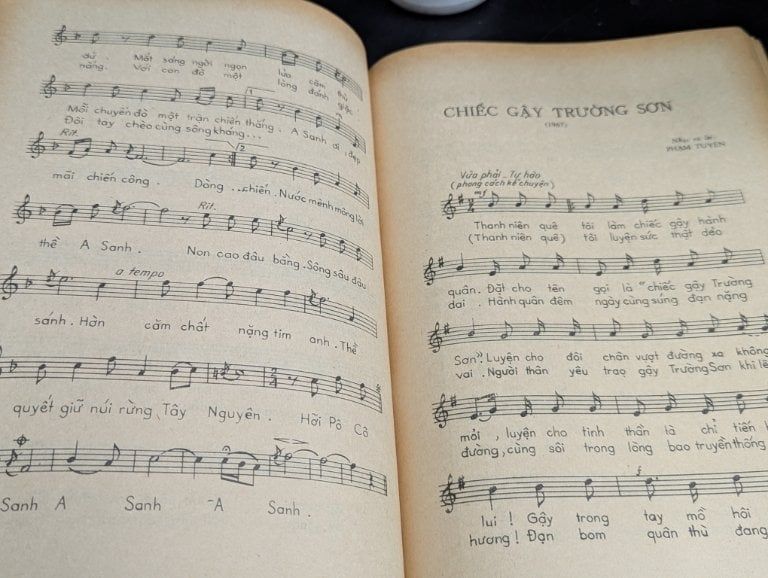 đủ. Mắt sáng ngời ngọn lửa căm thù
nắng. Với con đò một lòng đánh giặc
Mỗi chuyến đò một trận chiến thắng. A Sanh ơi đẹp
Đôi tay chèo cùng sông kháng...
Rit. 2
mãi chiến công. Dòng ... chiến. Nước mênh mông lời
Rit.
thề A Sanh. Non cao đâu bằng. Sông sâu đâu
a tempo
sánh. Hờn căm chất nặng tim anh. Thề
quyết giữ núi rừng Tây Nguyên. Hỡi Pô Cô
Sanh A Sanh A Sanh.
CHIẾC GẬY TRƯỜNG SƠN
(1967)
Nhạc và lời:
PHẠM TUYÊN
Vừa phải - Tự hào
(phong cách kể chuyện) mf
Thanh niên quê tôi làm chiếc gậy hành
(Thanh niên quê) tôi luyện sức thật dẻo
quân. Đặt cho tên gọi là "chiếc gậy Trường
dai. Hành quân đêm ngày cùng súng đạn nặng
Sơn". Luyện cho đôi chân vượt đường xa không
vai. Người thân yêu trao gậy Trường Sơn khi lê
mỏi, luyện cho tinh thần là chỉ tiến
đường, cùng sôi trong lòng bao truyền thống
f
lui! Gậy trong tay mồ hôi
hương! Đạn bom quân thù đang